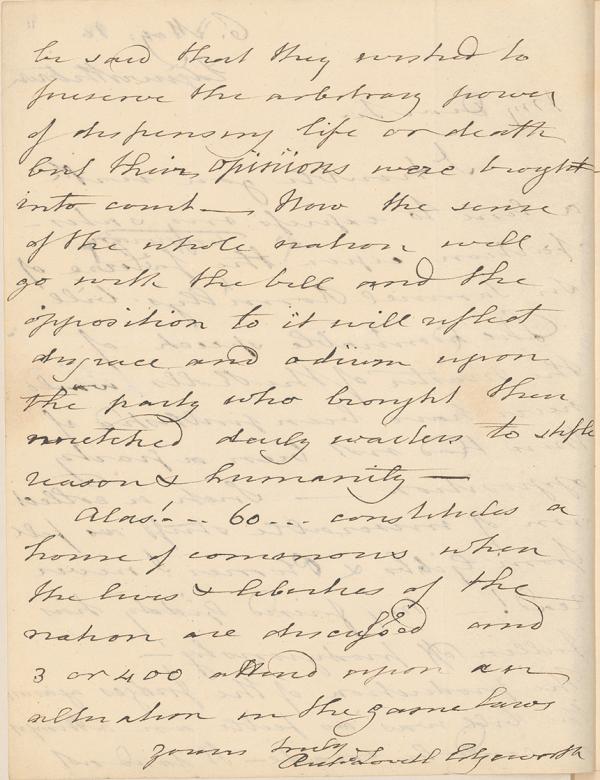 be said that they wished to
preserve the arbitrary power
of dispensing life or death
but their opinions were brought
into court — Now the sense
of the whole nation will
go with the bill and the
opposition to it will reflect
disgrace and odium upon
the party who brought their
wretched daily waiters to stifle
reason & humanity —
Alas! - - 60 - - - constitutes a
house of commons when
the lives & liberties of the
nation are discussed and
3 or 400 attend upon an
alteration in the game laws
yours truly
Lovell Edgeworth